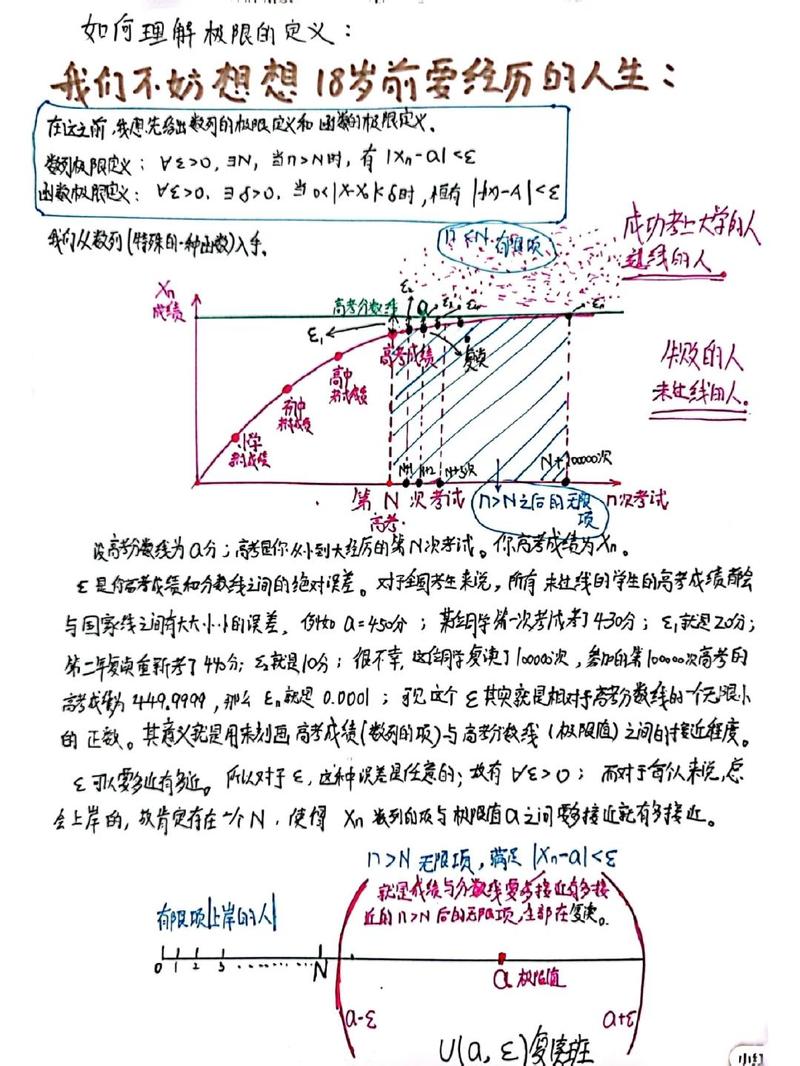 如何理解极限的定义：
我们不妨想想18岁前要经历的人生：
在这之前，我想先给出数列的极限定义和函数的极限定义.
数列极限定义：∀ε>0, ∃N, 当n>N时, 有|Xn-a|<ε
函数极限定义：∀ε>0, ∃δ>0, 当0<|X-X₀|<δ时, 恒有|f(x)-A|<ε
我们从数列(特殊的一种函数)入手.
n<N 有限项
成功考上大学的人
过线的人
Xn
成绩
高考分数线
a
ε₁
ε₂
高考成绩
复读
高中
考试成绩
初中
考试成绩
小学
考试成绩
失败的人
未过线的人。
N+1
N+2
N+3次
N+100000次
第N次考试
高考
n>N之后的无限项
n次考试
设高考分数线为a分；高考是你从小到大经历的第N次考试。你高考成绩为Xn。
ε是你高考成绩和分数线之间的绝对误差。对于全国考生来说，所有未过线的学生的高考成绩都会
与国家线之间有大大小小的误差，例如a=450分；某位同学第一次考试考了430分；ε₁就是20分；
第二年复读重新考了440分；ε₂就是10分；很不幸，这位同学复读了10000次，参加的第100000次高考的
高考成绩为449.9999，那么εn就是0.0001；可见这个ε其实就是相对于高考分数线的一个无限小
的正数。其意义就是用来刻画高考成绩(数列的项)与高考分数线(极限值)之间的接近程度。
ε可以要多近有多近。所以对于ε，这种误差是任意的；故有∀ε>0；而对于每个人来说，总
会上岸的，故肯定存在一个N，使得Xn数列的项与极限值a之间要多接近就有多接近。
n>N无限项，满足|Xn-a|<ε
就是成绩与分数线要多接近有多接
近的n>N后的无限项，全部在复读。
有限项|上岸的人|
0 1 2 3 ········ N
a 极限值
a-ε
a+ε
U(a, ε)复读班